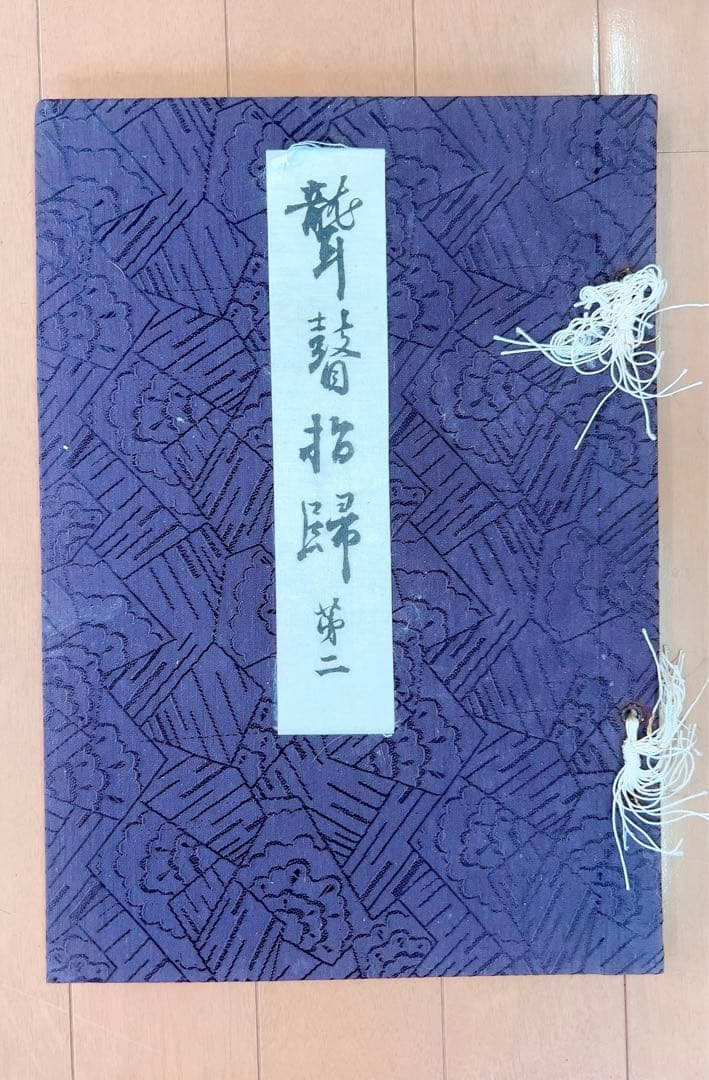 聾瞽指歸 第二